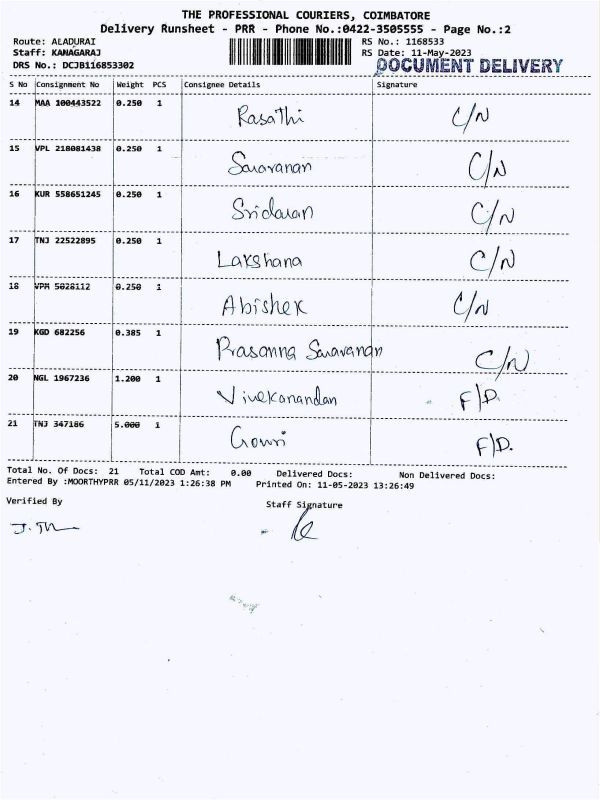 THE PROFESSIONAL COURIERS, COIMBATORE
Delivery Runsheet - PRR - Phone No.:0422-3505555 - Page No.:2
Route: ALADURAI RS No.: 1168533
Staff: KANAGARAJ RS Date: 11-May-2023
DRS No.: DCJB116853302 DOCUMENT DELIVERY
S No Consignment No Weight PCS Consignee Details Signature
14 MAA 100443522 0.250 1 Rasathi C/N
15 VPL 218081438 0.250 1 Saravanan C/N
16 KUR 558651245 0.250 1 Sridaran C/N
17 TNJ 22522895 0.250 1 Lakshana C/N
18 VPM 5028112 0.250 1 Abishek C/N
19 KGD 682256 0.385 1 Prasanna Saravanan C/N
20 NGL 1967236 1.200 1 Vivekanandan F/D.
21 TNJ 347186 5.000 1 Gowri F/D.
Total No. Of Docs: 21 Total COD Amt: 0.00 Delivered Docs: Non Delivered Docs:
Entered By :MOORTHYPRR 05/11/2023 1:26:38 PM Printed On: 11-05-2023 13:26:49
Verified By Staff Signature